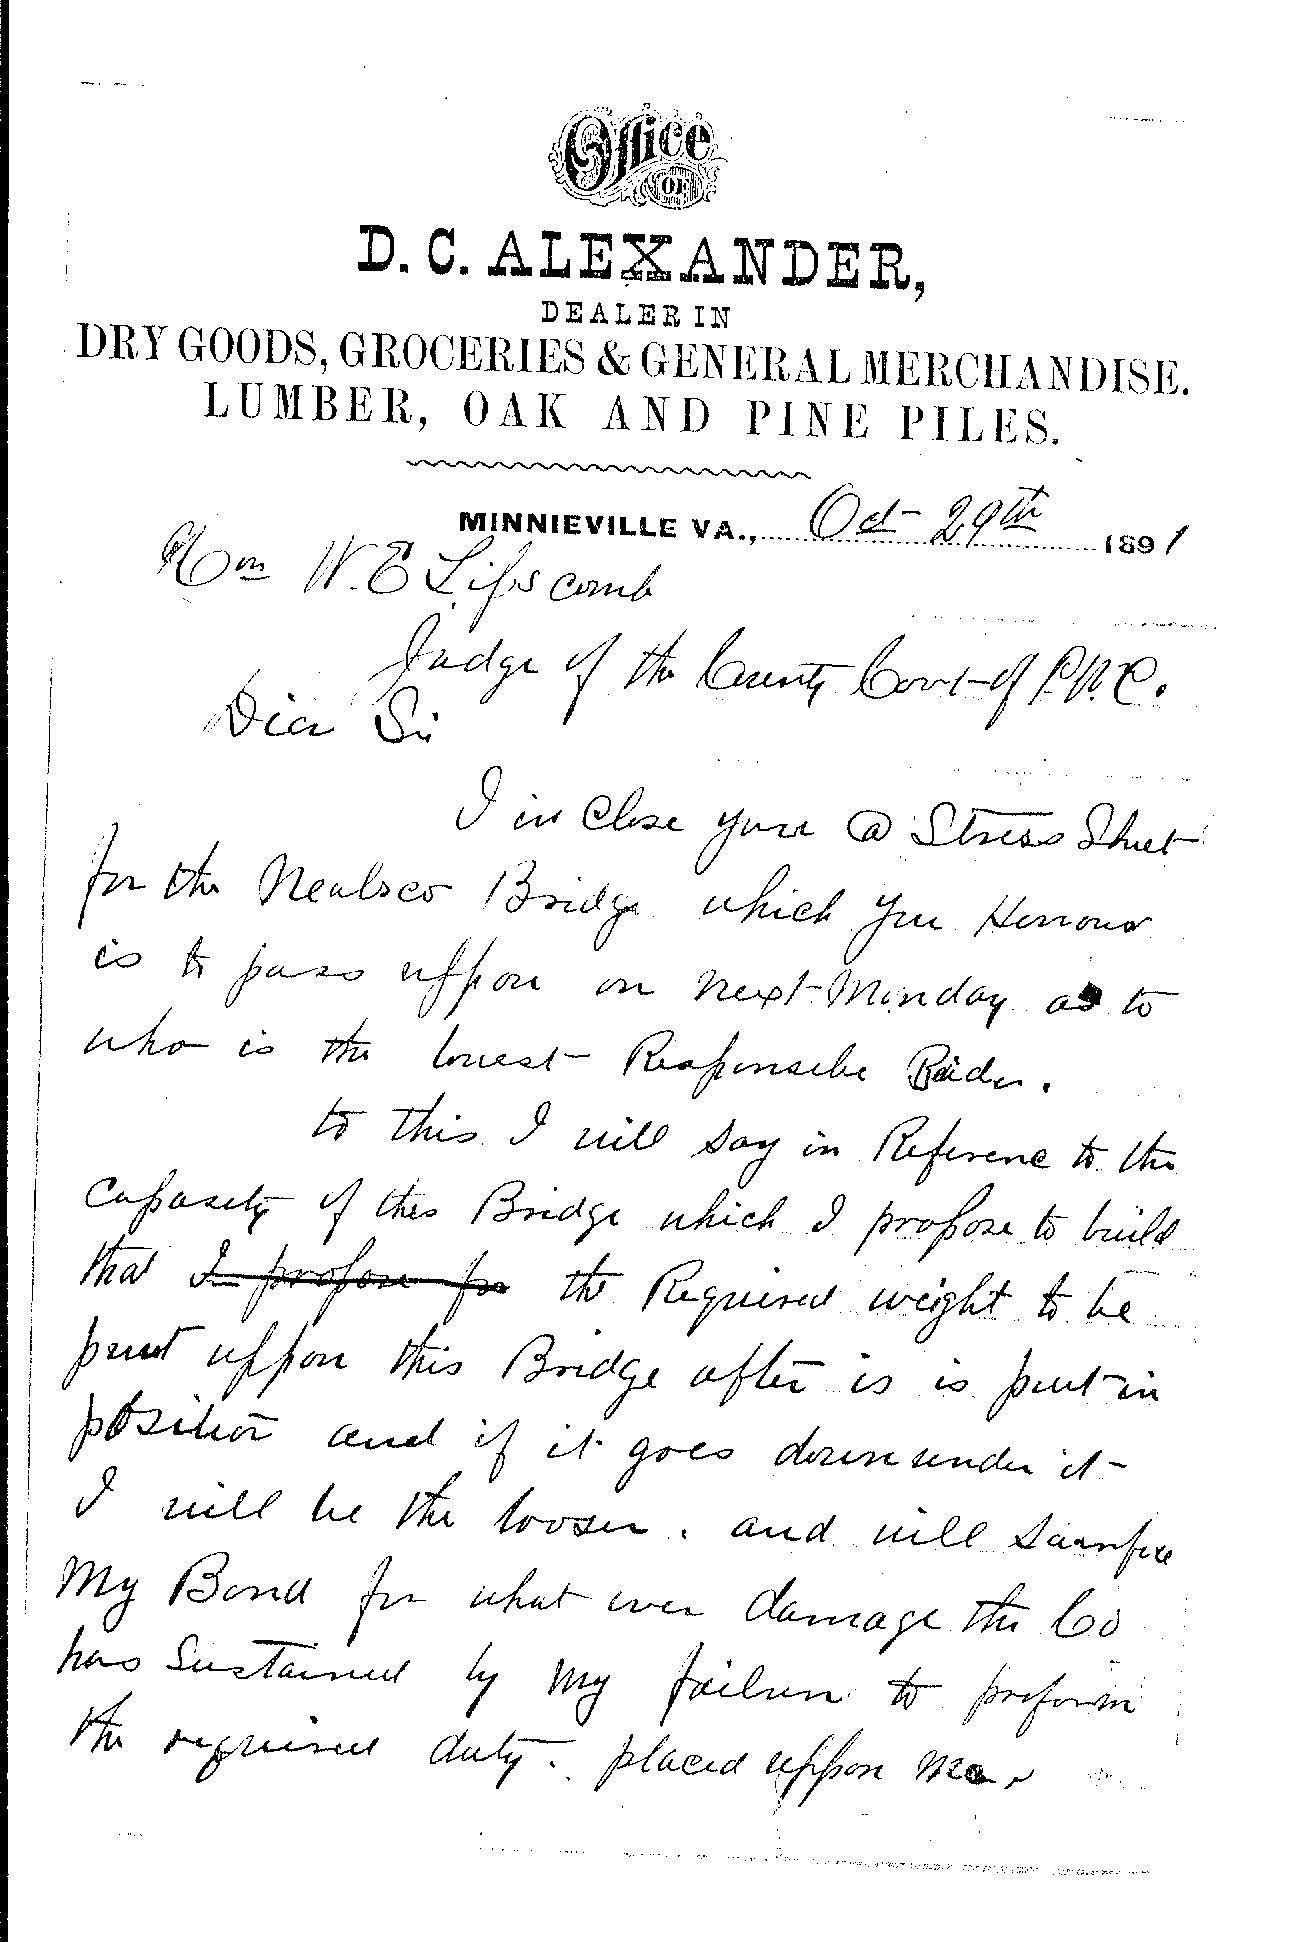 Office
OF
D. C. ALEXANDER,
DEALER IN
DRY GOODS, GROCERIES & GENERAL MERCHANDISE.
LUMBER, OAK AND PINE PILES.
MINNIEVILLE VA., Oct 29th 1891
Hon W. E Lipscomb
Judge of the County Court of P.W.C.
Dear Sir
I in close your @ Stress Sheet
for the Neabsco Bridge which your Honour
is to pass uppon on next Monday as to
who is the lowest Responsebe Bidder.
to this I will say in Reference to the
capasety of this Bridge which I propose to build
that I propose for the Required weight to be
put uppon this Bridge after is is put in
position and if it goes down under it
I will be the looser. and will sacrifice
My Bond for what ever damage the Co
has sustained by my failure to preform
the required duty. placed uppon me,